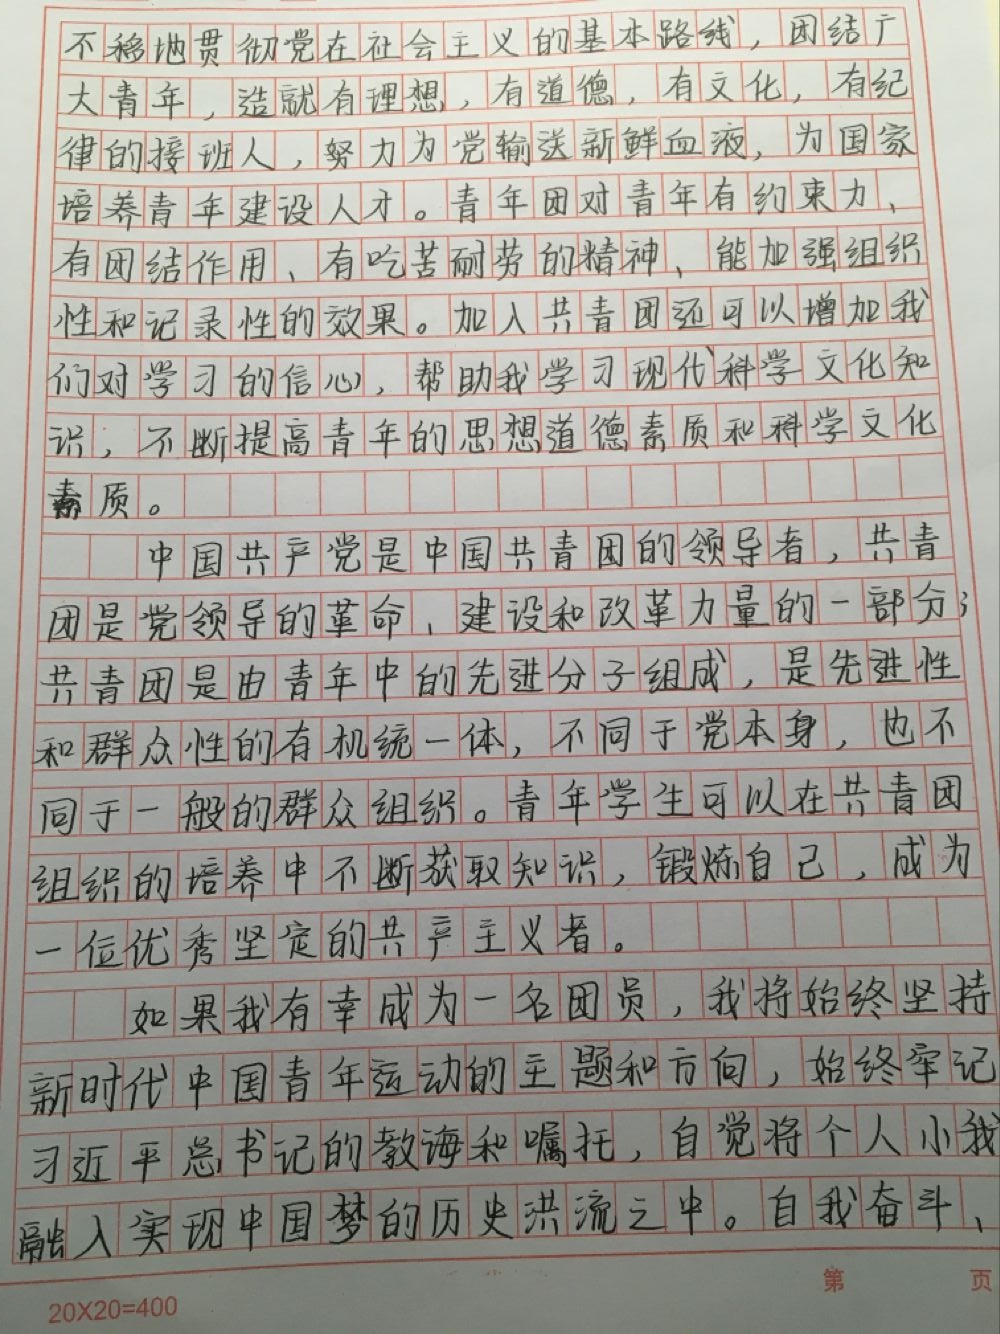 不移地贯彻党在社会主义的基本路线，团结广
大青年，造就有理想，有道德，有文化，有纪
律的接班人，努力为党输送新鲜血液，为国家
培养青年建设人才。青年团对青年有约束力、
有团结作用、有吃苦耐劳的精神、能加强组织
性和记录性的效果。加入共青团还可以增加我
们对学习的信心，帮助我学习现代科学文化知
识，不断提高青年的思想道德素质和科学文化
素质。
中国共产党是中国共青团的领导者，共青
团是党领导的革命、建设和改革力量的一部分；
共青团是由青年中的先进分子组成，是先进性
和群众性的有机统一体，不同于党本身，也不
同于一般的群众组织。青年学生可以在共青团
组织的培养中不断获取知识，锻炼自己，成为
一位优秀坚定的共产主义者。
如果我有幸成为一名团员，我将始终坚持
新时代中国青年运动的主题和方向，始终牢记
习近平总书记的教诲和嘱托，自觉将个人小我
融入实现中国梦的历史洪流之中。自我奋斗、
第 页
20X20=400